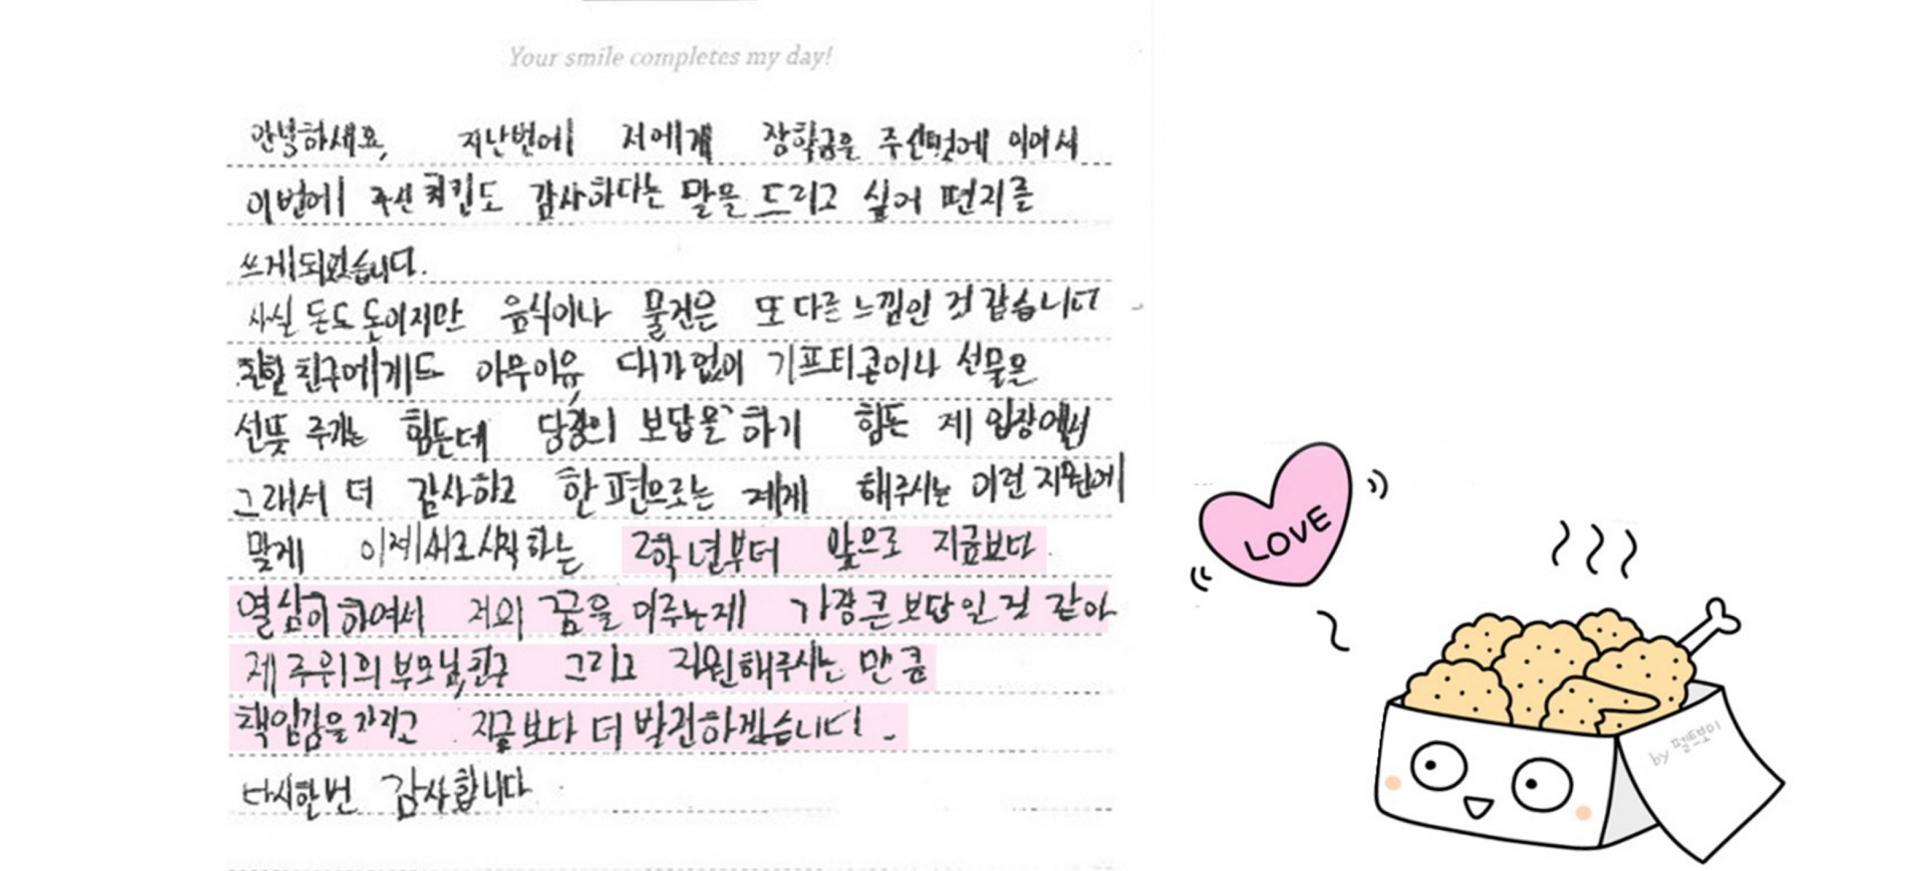 Your smile completes my day!
안녕하세요, 지난번에 저에게 장학금을 주신것에 이어서
이번에 주신 치킨도 감사하다는 말을 드리고 싶어 편지를
쓰게되었습니다.
사실 돈도 돈이지만 음식이나 물건은 또 다른 느낌인 것 같습니다
친한 친구에게도 아무이유, 대가없이 기프티콘이나 선물은
선뜻 주기는 힘든데 당장의 보답을 하기 힘든 제 입장에서
그래서 더 감사하고 한편으로는 제게 해주시는 이런 지원에
맞게 이제새로시작하는 2학년부터 앞으로 지금보다
열심히하여서 저의 꿈을 이루는게 가장큰보답일것 같아
제 주위의 부모님,친구 그리고 지원해주시는 만큼
책임감을가지고 지금보다 더 발전하겠습니다.
다시한번 감사합니다
LOVE
by 펄트보이